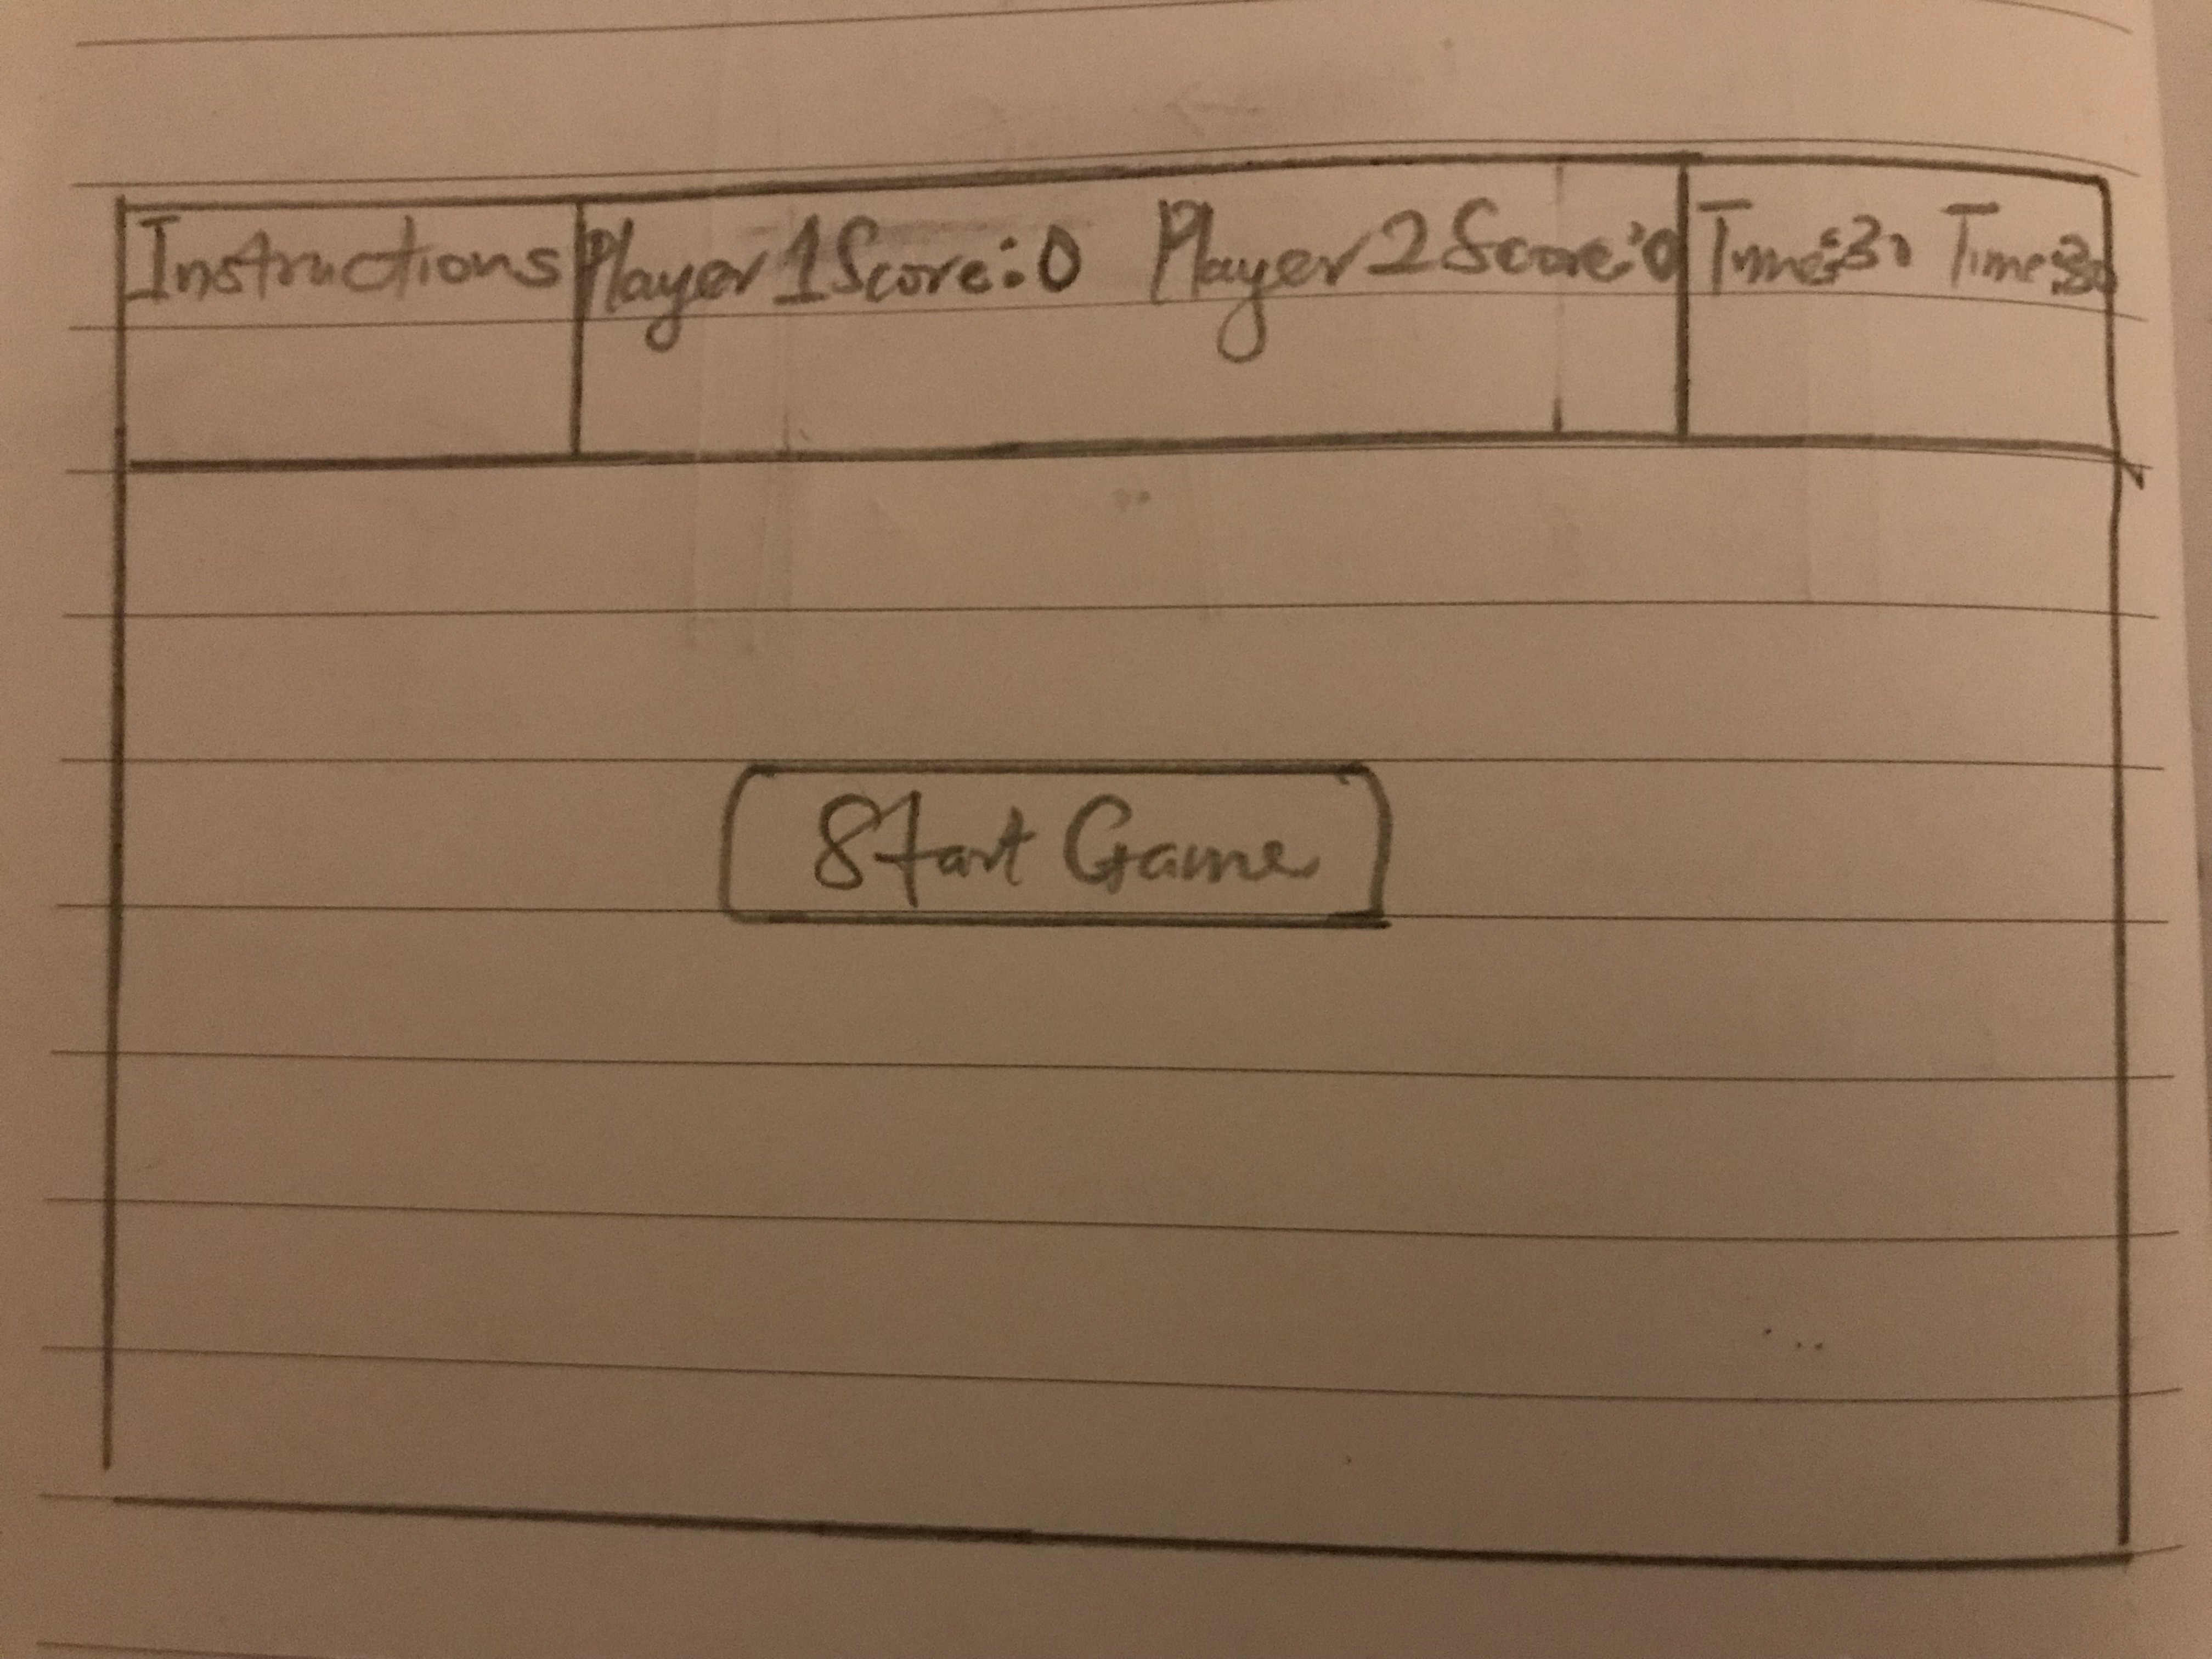 Instructions Player 1 Score:0 Player 2 Score:0 Time:30 Time:30
Start Game